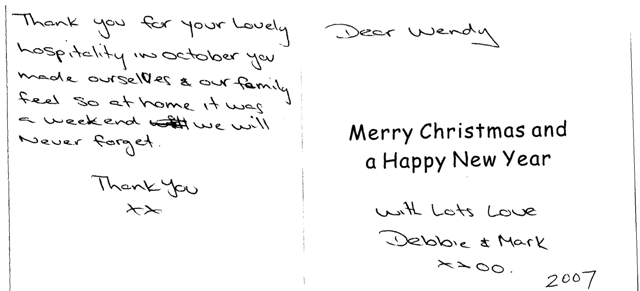 Thank you for your Lovely
hospitality in october you
made ourselves & our family
feel so at home it was
a weekend we will
Never forget.
Thank you
xx
Dear Wendy
Merry Christmas and
a Happy New Year
with Lots Love
Debbie & Mark
xxoo.
2007